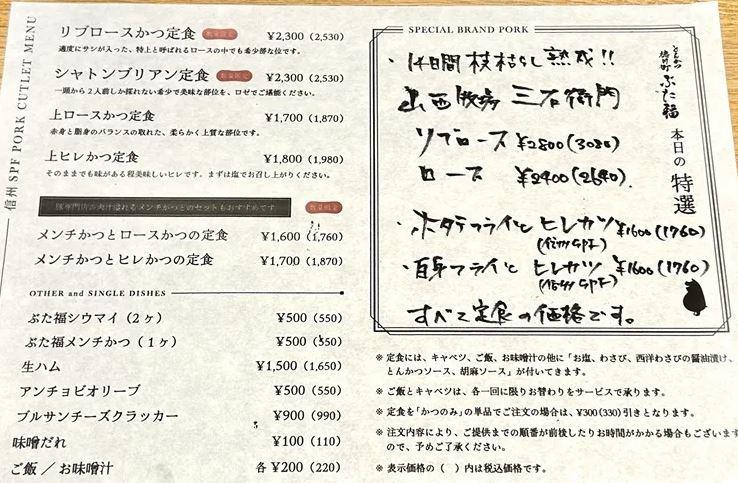 信州 SPF PORK CUTLET MENU
リブロースかつ定食 数量限定 ¥2,300 (2,530)
適度にサシが入った、特上と呼ばれるロースの中でも希少部な位です。
シャトンブリアン定食 数量限定 ¥2,300 (2,530)
一頭から2人前しか採れない希少で美味な部位を、ロゼでご堪能ください。
上ロースかつ定食 ¥1,700 (1,870)
赤身と脂身のバランスの取れた、柔らかく上質な部位です。
上ヒレかつ定食 ¥1,800 (1,980)
そのままでも味がある程美味しいヒレです。まずは塩でお召し上がりください。
豚専門店の肉汁溢れるメンチかつとのセットもおすすめです 数量限定
メンチかつとロースかつの定食 ¥1,600 (1,760)
メンチかつとヒレかつの定食 ¥1,700 (1,870)
OTHER and SINGLE DISHES
ぶた福シウマイ(2ヶ) ¥500 (550)
ぶた福メンチかつ(1ヶ) ¥500 (550)
生ハム ¥1,500 (1,650)
アンチョビオリーブ ¥500 (550)
ブルサンチーズクラッカー ¥900 (990)
味噌だれ ¥100 (110)
ご飯 / お味噌汁 各¥200 (220)
SPECIAL BRAND PORK
とんかつ
ぶた福
本日の特選
・14日間枝枯らし熟成!!
山西牧場 三右衛門
リブロース ¥2800(3080)
ロース ¥2400(2640)
・ホタテフライと ヒレカツ ¥1600(1760)
(信州SPF)
・白身フライと ヒレカツ ¥1600(1760)
(信州SPF)
すべて定食の価格です。
※ 定食には、キャベツ、ご飯、お味噌汁の他に「お塩、わさび、西洋わさびの醤油漬け、
とんかつソース、胡麻ソース」が付いてきます。
※ ご飯とキャベツは、各一回に限りお替わりをサービスで承ります。
※ 定食を「かつのみ」の単品でご注文の場合は、¥300(330)引きとなります。
※ 注文内容により、ご提供までの順番が前後したりお時間がかかる場合もございます
ので、予めご了承ください。
※ 表示価格の( )内は税込価格です。